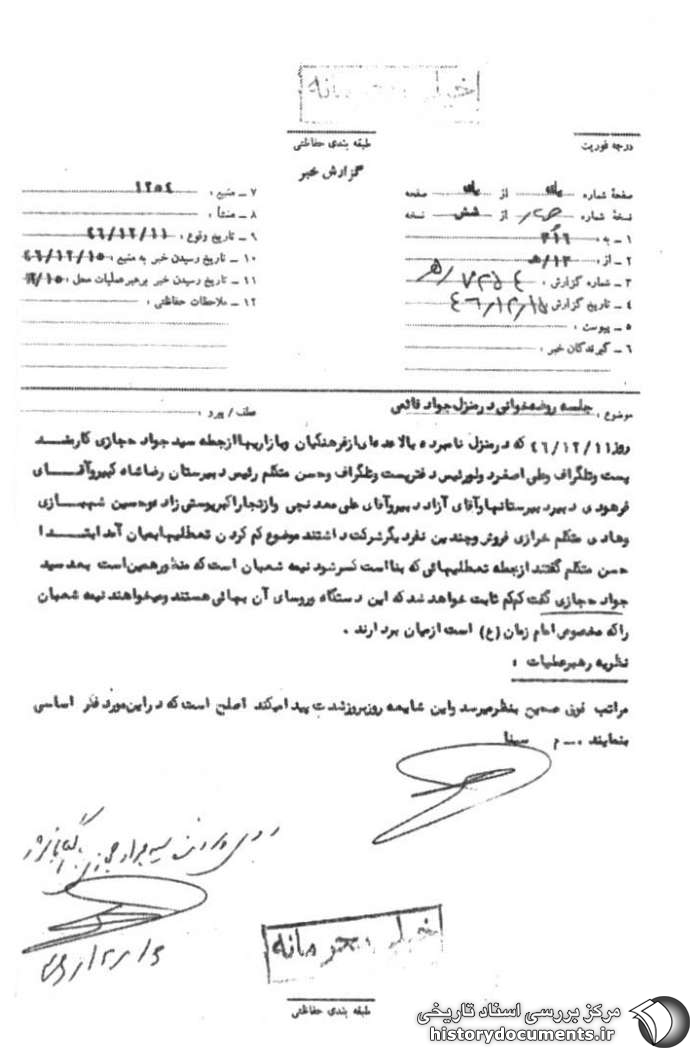 خیلی محرمانه
درجه فوریت
طبقه بندی حفاظتی
گزارش خبر
صفحهٔ شماره یک از یک صفحه
نسخهٔ شماره چهار از شش نسخه
۱ - به : ۳۱۶
۲ - از : ۱۳/ه
۳ - شماره گزارش :
۴ - تاریخ گزارش ۴۶/۱۲/۱۵
۵ - پیوست :
۶ - گیرندگان خبر :
۷ - منبع : ۱۲۵۴
۸ - منشأ :
۹ - تاریخ وقوع : ۴۶/۱۲/۱۱
۱۰ - تاریخ رسیدن خبر به منبع : ۴۶/۱۲/۱۵
۱۱ - تاریخ رسیدن خبر برهبر عملیات محل :
۱۲ - ملاحظات حفاظتی :
موضوع : جلسه روضه‌خوانی در منزل جواد قائمی
عطف / پیرو :
روز ۴۶/۱۲/۱۱ که در منزل نامبرده بالا عده‌ای از فرهنگیان و بازاریها از جمله سید جواد حجازی کارمند
پست و تلگراف و علی اصغر دلور رئیس دفتر پست و تلگراف و حسن متکلم رئیس دبیرستان رضا شاه کبیر و آقای
فرهودی دبیر دبیرستانها و آقای آزاد دبیر و آقای علی معدنچی و از تجار اکبر پوستی زاده و حسین شهبازی
و هادی متکلم خرازی فروش و چندین نفر دیگر شرکت داشتند موضوع کم کردن تعطلیها بمیان آمد ابتدا
حسن متکلم گفتند از جمله تعطلیهائی که بنا است کسر شود نیمه شعبان است که منظور همین است بعد سید
جواد حجازی گفت کم‌کم ثابت خواهد شد که این دستگاه و روسای آن بهائی هستند و میخواهند نیمه شعبان
را که مخصوص امام زمان (ع) است از میان بردارند .
نظریه رهبر عملیات :
مراتب فوق صحیح بنظر میرسد و این شایعه روزبروز شدت پیدا میکند اصلح است که در این مورد فکر اساسی
بنمایند . م سینا
سید جواد حجازی
خیلی محرمانه
طبقه بندی حفاظتی
مرکز بررسی اسناد تاریخی
historydocuments.ir